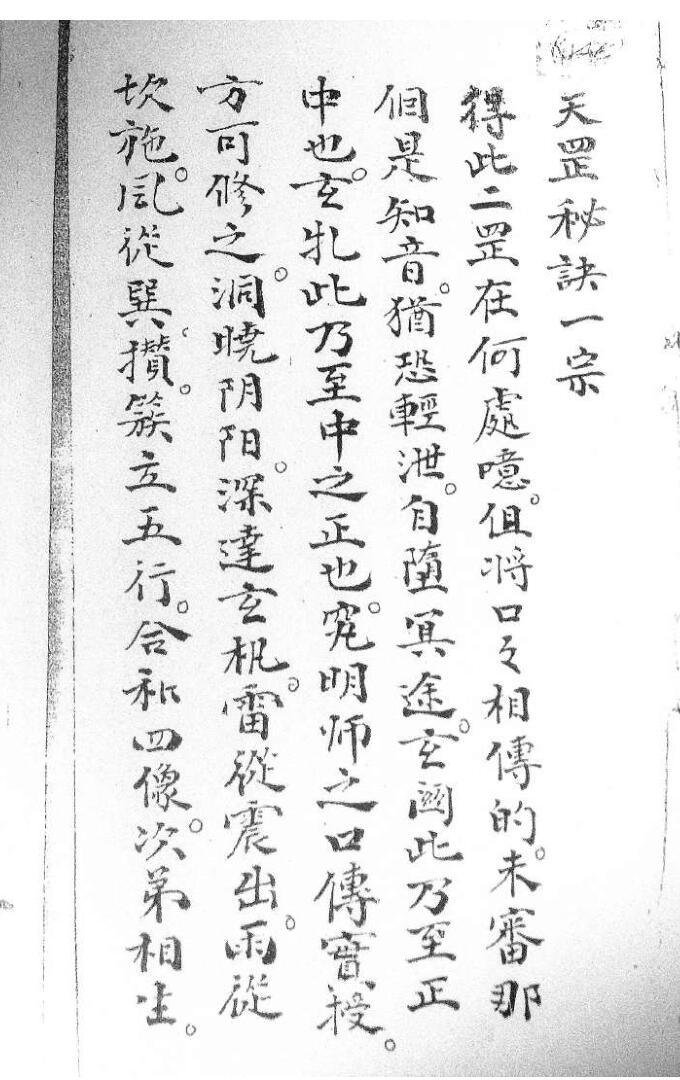 天罡秘訣一宗
得此二罡在何處噫。但將口々相傳的。未審那
個是知音。猶恐輕泄。自墮冥途。玄関此乃至正
中也。玄牝此乃至中之正也。究明师之口傳實授。
方可修之。洞曉阴阳。深達玄机。雷從震出。雨從
坎施。风從巽。攢。簇立五行。合和四像。次第相生。